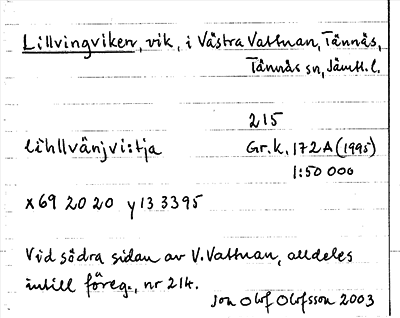 Lillvingviken, vik, i Västra Vattnan, Tännäs,
Tännäs sn, Jämtl. l.
215
lihllvänjvi:tja Gr.k. 172A (1995)
1:50 000
x 69 20 20 y 13 3395
Vid södra sidan av V. Vattnan, alldeles
intill föreg., nr 214.
Jon Olof Olofsson 2003